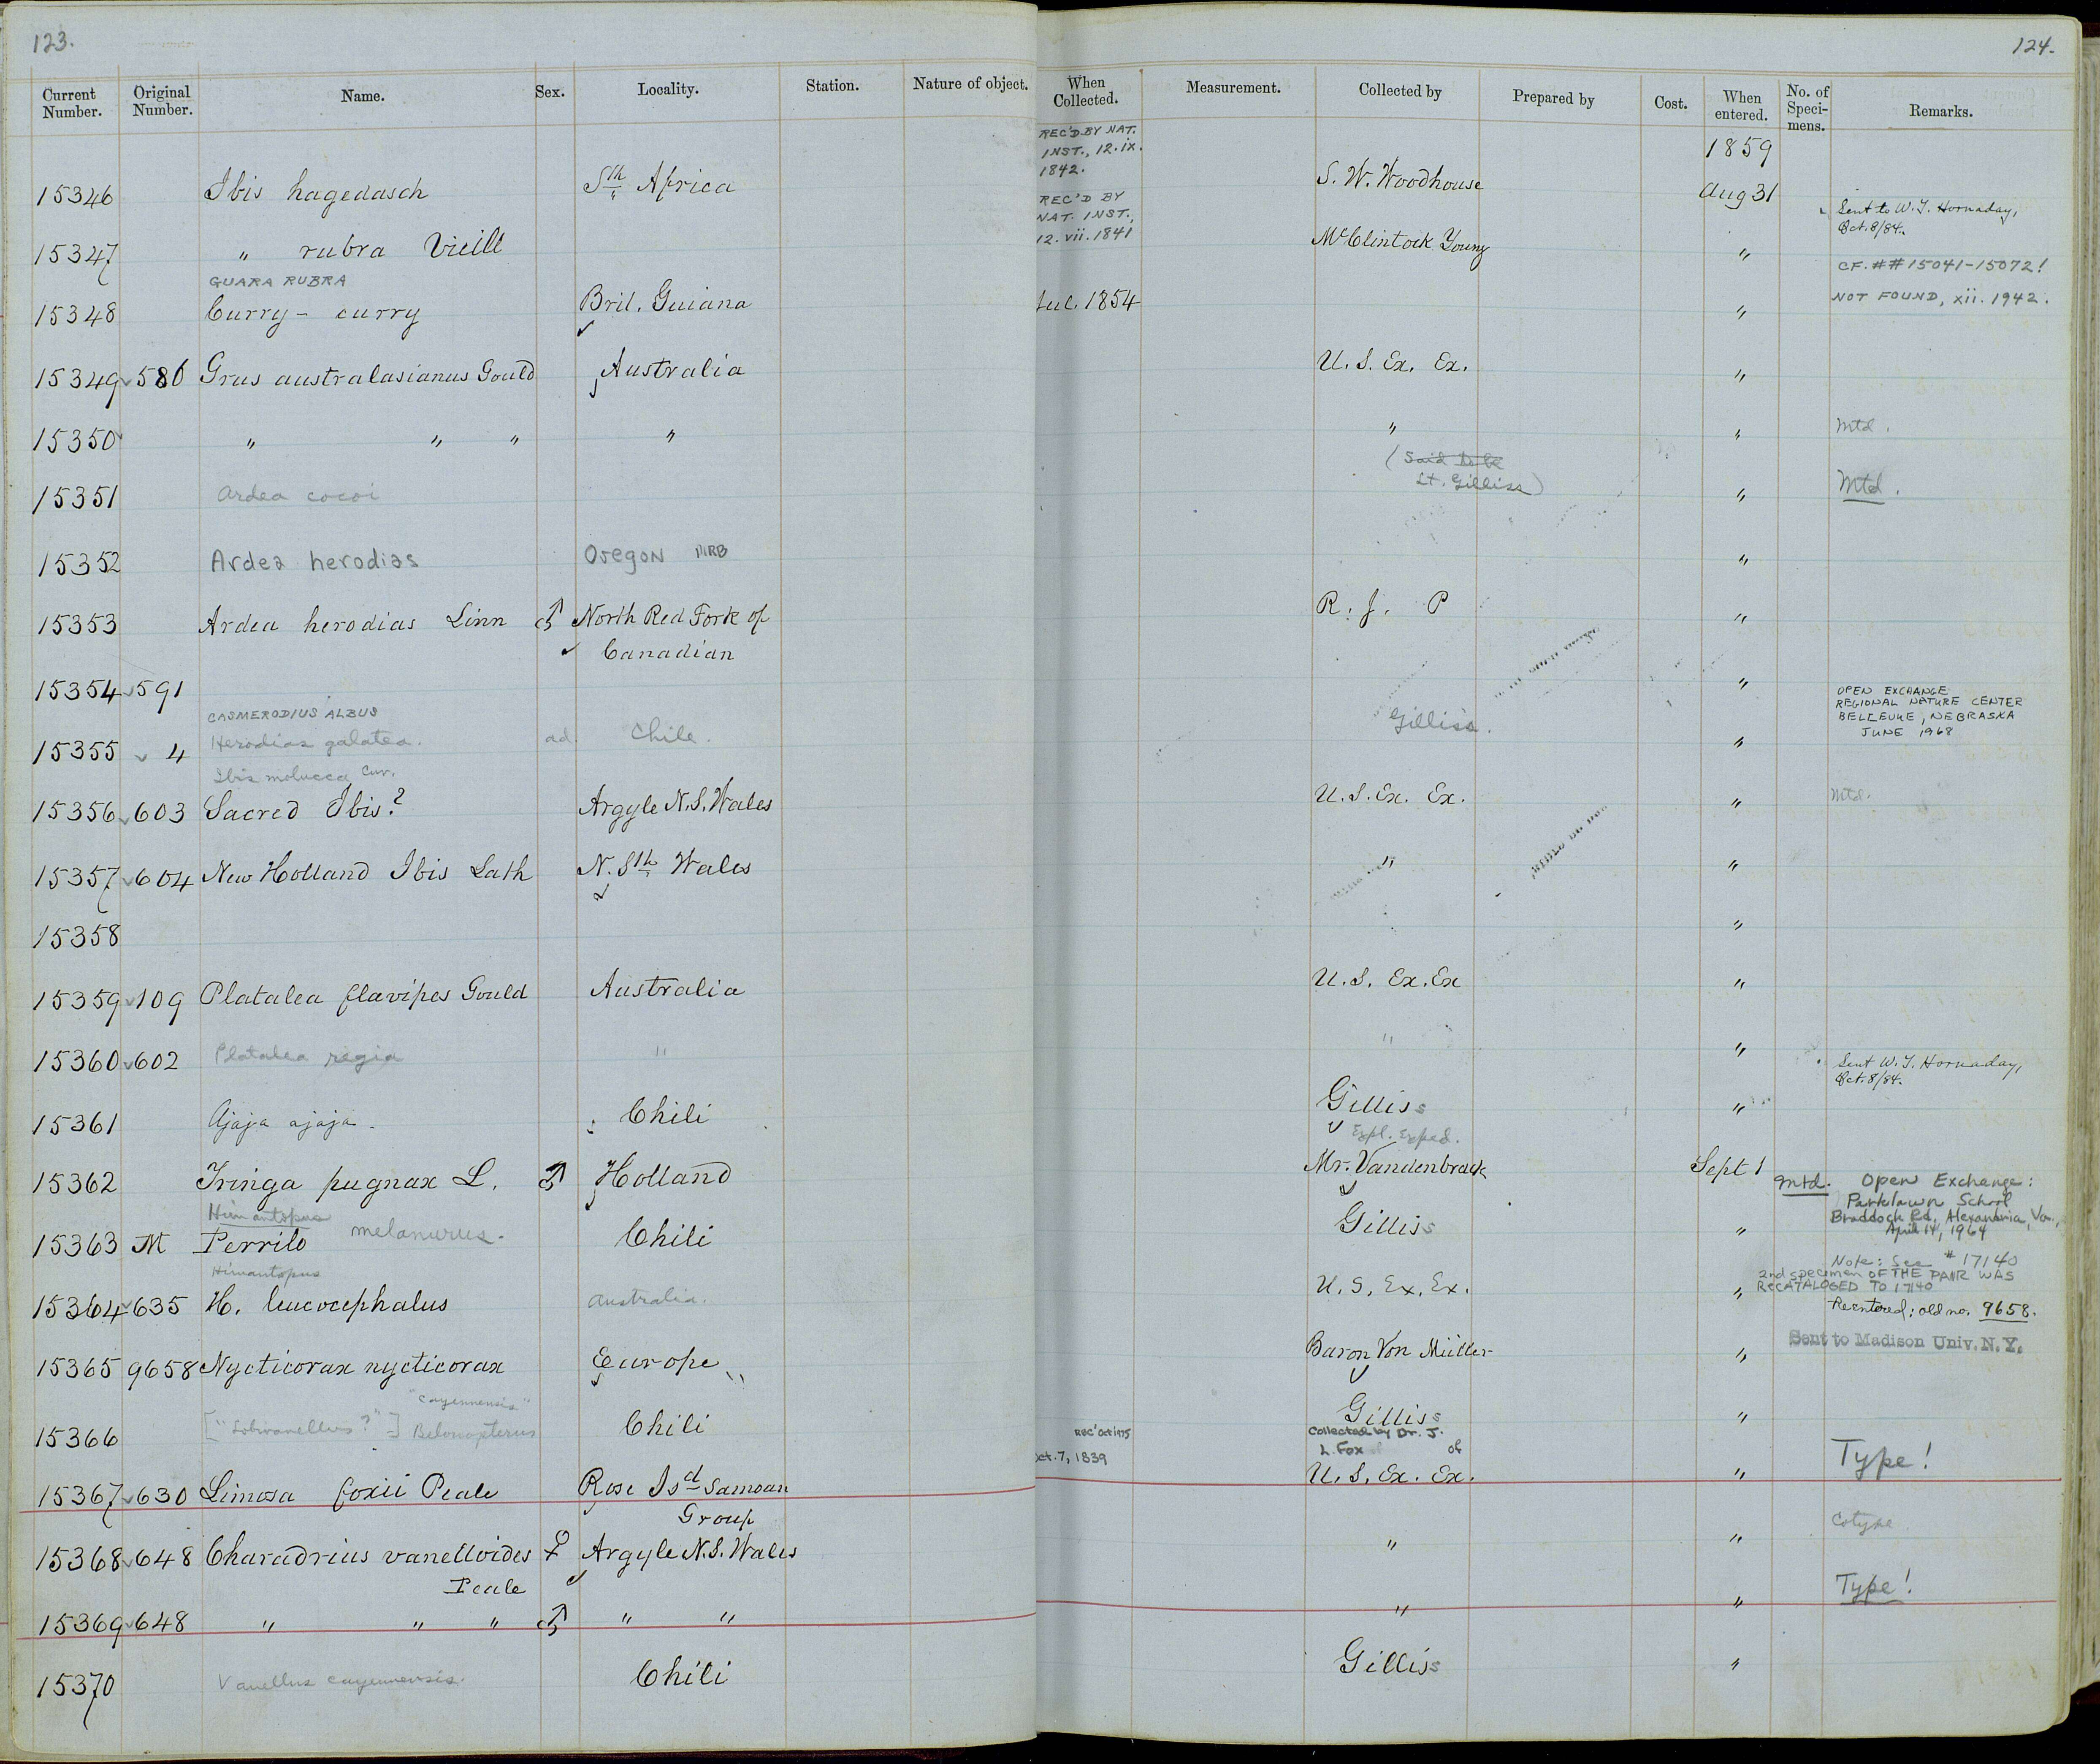 123.
124.
Current Number. Original Number. Name. Sex. Locality. Station. Nature of object. When Collected. Measurement. Collected by Prepared by Cost. When entered. No. of Speci-mens. Remarks.
REC'D BY NAT.
INST., 12.ix.
1842.
1859
15346 Ibis hagedasch Sth Africa S. W. Woodhouse Aug 31
REC'D BY
NAT. INST.,
12.vii.1841
Sent to W. T. Hornaday,
Oct. 8/84.
15347 " rubra Vieill McClintock Young "
GUARA RUBRA
CF. ## 15041-15072!
NOT FOUND, xii. 1942.
15348 Curry - curry Brit. Guiana Jul. 1854 "
15349 586 Grus australasianus Gould Australia U. S. Ex. Ex. "
15350 " " " " " " Mtd.
(Said to be
Lt. Gilliss)
15351 Ardea cocoi " Mtd.
15352 Ardea herodias Oregon MRB "
15353 Ardea herodias Linn ♂ North Red Fork of R. J. P "
Canadian
15354 591 "
OPEN EXCHANGE
REGIONAL NATURE CENTER
BELLEVUE, NEBRASKA
JUNE 1968
CASMERODIUS ALBUS
15355 4 Herodias galatea. ad. Chile. Gilliss. "
Ibis molucca Cuv.
15356 603 Sacred Ibis? Argyle N. S. Wales U. S. Ex. Ex. " Mtd.
15357 604 New Holland Ibis Lath N. Sth Wales " "
15358 "
15359 109 Platalea flavipes Gould Australia U. S. Ex. Ex "
15360 602 Platalea regia " " "
Sent W. T. Hornaday,
Oct. 8/84.
15361 Ajaja ajaja. Chili Gilliss "
Expl. Exped.
15362 Tringa pugnax L. ♂ Holland Mr. Vandenbrack Sept 1
Mtd. Open Exchange:
Parklawn School
Braddock Rd. Alexandria, Va.,
April 14, 1964
Himantopus
15363 M Perrito melanurus. Chili Gilliss "
Note: See # 17140
2nd specimen OF THE PAIR WAS
RECATALOGED TO 17140
Himantopus
15364 635 H. leucocephalus Australia. U. S. Ex. Ex. "
Reentered; old no. 9658.
Sent to Madison Univ. N. Y.
15365 9658 Nycticorax nycticorax Europe Baron Von Müller "
"cayennensis"
15366 ["Lobivanellus?"] Belonopterus Chili Gilliss "
REC' Oct 1975
Collected by Dr. J.
L. Fox of
Oct. 7, 1839
15367 630 Limosa foxii Peale Rose Isd Samoan U. S. Ex. Ex. " Type!
Group
15368 648 Charadrius vanelloides ♀ Argyle N. S. Wales " " Cotype
Peale
15369 648 " " " ♂ " " " " Type!
15370 Vanellus cayennensis. Chili Gilliss "